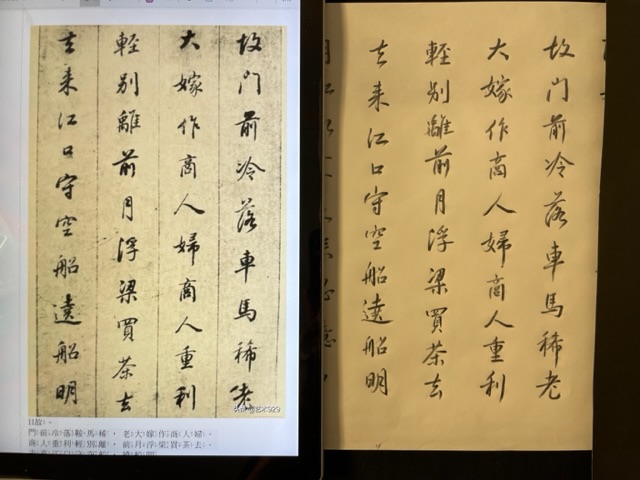 故門前冷落車馬稀老
大嫁作商人婦商人重利
輕別離前月浮梁買茶去
去来江口守空船遶船明
門前冷落鞍馬稀，老大嫁作商人婦。
商人重利輕別離，前月浮梁買茶去。
故門前冷落車馬稀老
大嫁作商人婦商人重利
輕別離前月浮梁買茶去
去来江口守空船遶船明